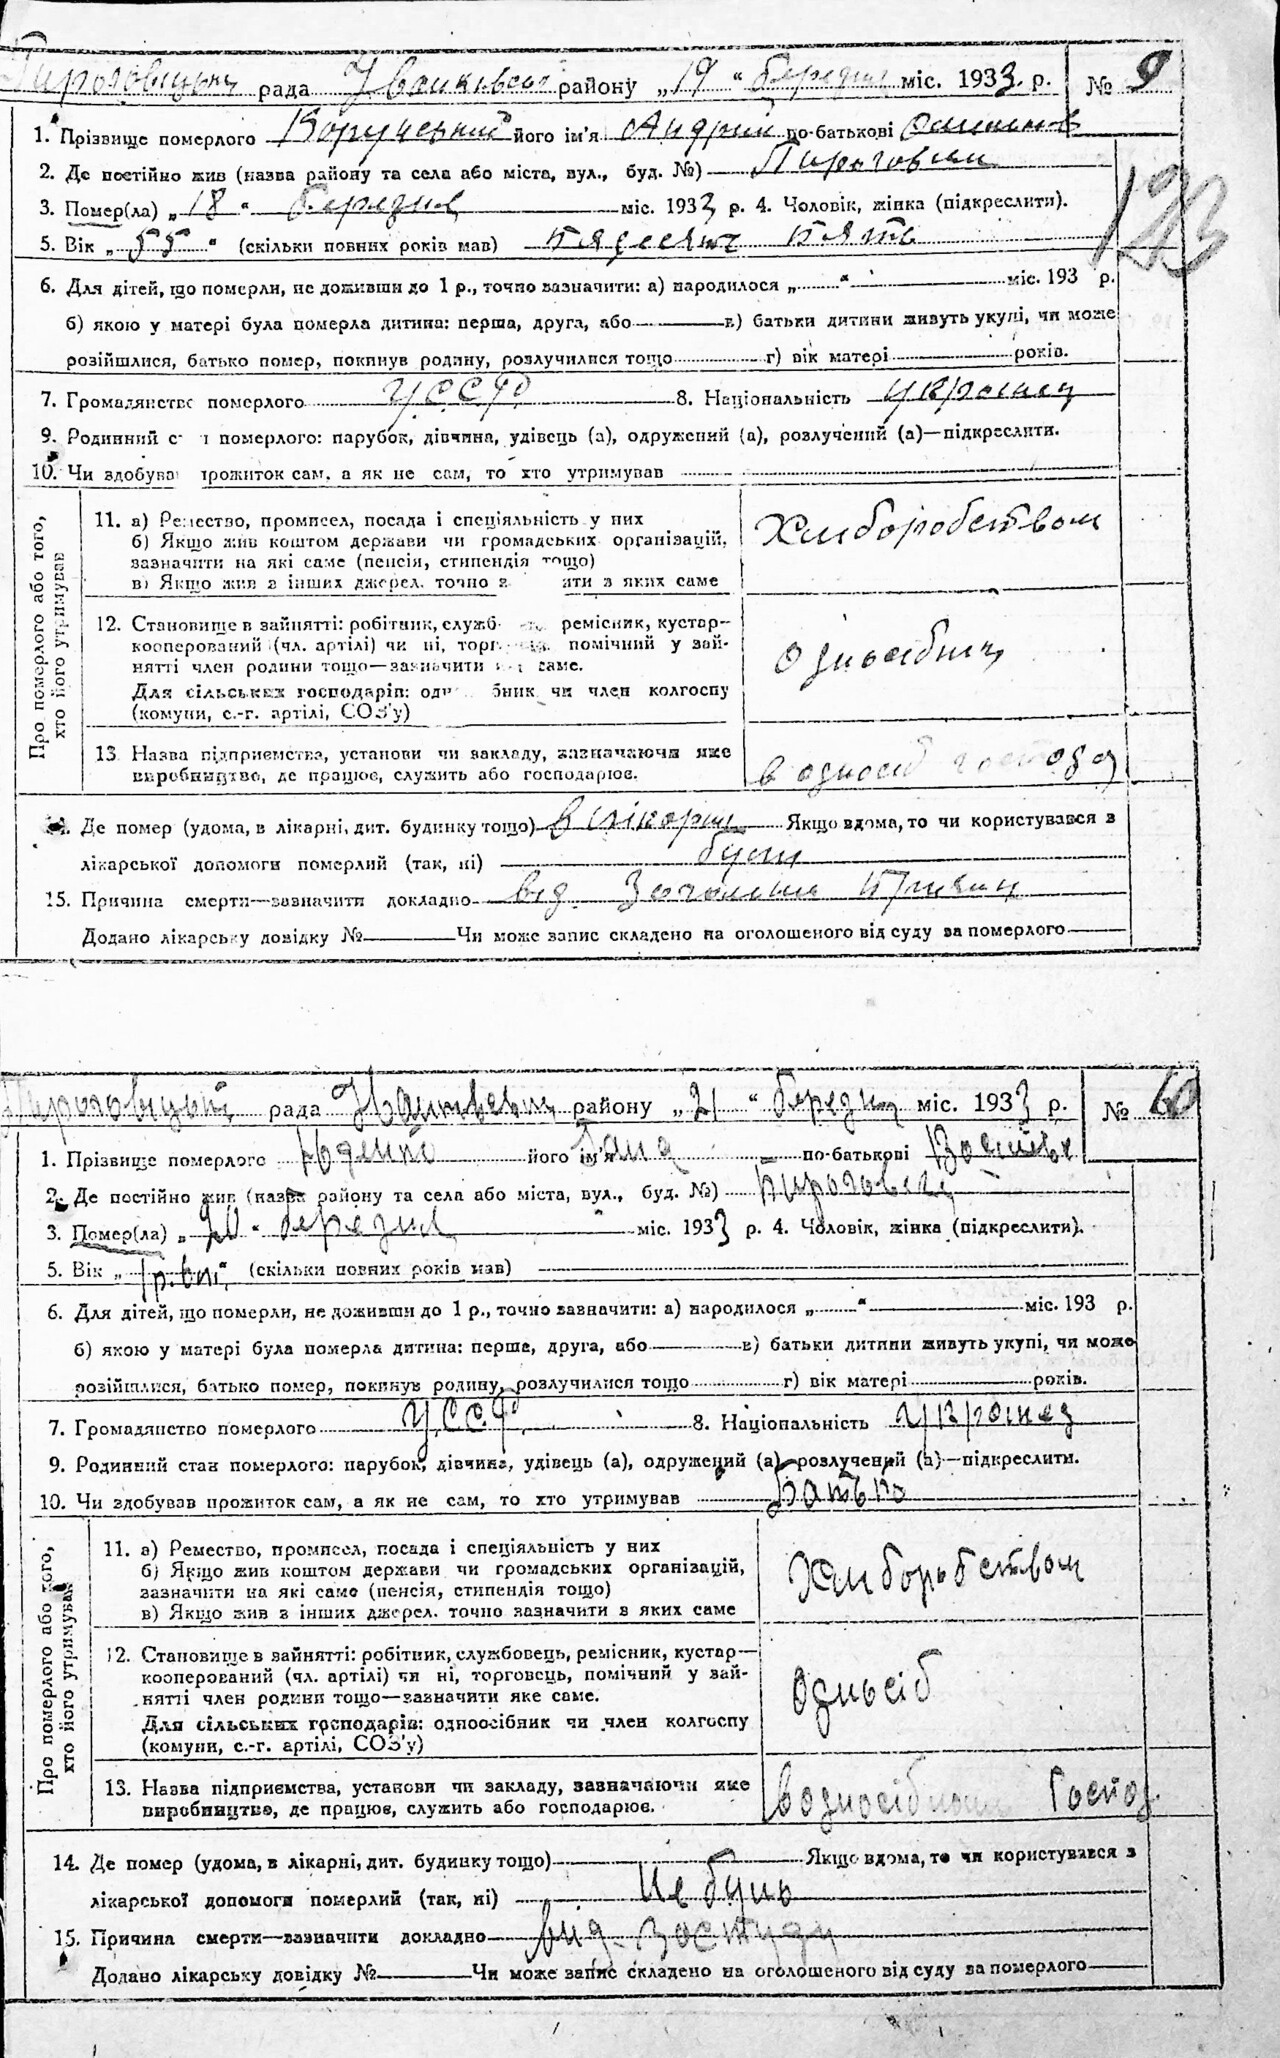 рада району „19“ березня міс. 1933 р. № 9
1. Прізвище померлого його ім'я Андрій по-батькові
2. Де постійно жив (назва району та села або міста, вул., буд. №)
3. Помер(ла) „18“ березня міс. 1933 р. 4. Чоловік, жінка (підкреслити).
5. Вік „55“ (скільки повних років мав) пядесять пять
123
6. Для дітей, що померли, не доживши до 1 р., точно зазначити: а) народилося „ “ міс. 193 р.
б) якою у матері була померла дитина: перша, друга, або в) батьки дитини живуть укупі, чи може
розійшлися, батько помер, покинув родину, розлучилися тощо г) вік матері років.
7. Громадянство померлого У.С.С.Р. 8. Національність українец
9. Родинний с н померлого: парубок, дівчина, удівець (а), одружений (а), розлучений (а)—підкреслити.
10. Чи здобува прожиток сам, а як не сам, то хто утримував
Про померлого або того,
хто його утримував
11. а) Ремество, промисел, посада і спеціяльність у них
б) Якщо жив коштом держави чи громадських організацій,
зазначити на які саме (пенсія, стипендія тощо)
в) Якщо жив з інших джерел, точно з ити з яких саме
Хлиборобством
12. Становище в зайнятті: робітник, служб ремісник, кустар—
кооперований (чл. артілі) чи ні, торг помічний у зай-
нятті член родини тощо—зазначити саме.
Для сільських господарів: одн бник чи член колгоспу
(комуни, с.-г. артілі, СОЗ'у)
13. Назва підприємства, установи чи закладу, зазначаючи яке
виробництво, де працює, служить або господарює.
в односіб господ
14. Де помер (удома, в лікарні, дит. будинку тощо) Якщо вдома, то чи користувався з
лікарської допомоги померлий (так, ні)
15. Причина смерти—зазначити докладно від
Додано лікарську довідку № Чи може запис складено на оголошеного від суду за померлого
рада району „21“ березня міс. 1933 р. № 60
1. Прізвище померлого його ім'я по-батькові
2. Де постійно жив (назва району та села або міста, вул., буд. №)
3. Помер(ла) „20“ березня міс. 1933 р. 4. Чоловік, жінка (підкреслити).
5. Вік „ “ (скільки повних років мав)
6. Для дітей, що померли, не доживши до 1 р., точно зазначити: а) народилося „ “ міс. 193 р.
б) якою у матері була померла дитина: перша, друга, або в) батьки дитини живуть укупі, чи може
розійшлися, батько помер, покинув родину, розлучилися тощо г) вік матері років.
7. Громадянство померлого У.С.С.Р. 8. Національність українец
9. Родинний стан померлого: парубок, дівчина, удівець (а), одружений (а), розлучений (а)—підкреслити.
10. Чи здобував прожиток сам, а як не сам, то хто утримував батько
Про померлого або того,
хто його утримував
11. а) Ремество, промисел, посада і спеціяльність у них
б) Якщо жив коштом держави чи громадських організацій,
зазначити на які саме (пенсія, стипендія тощо)
в) Якщо жив з інших джерел, точно зазначити з яких саме
Хлиборобством
12. Становище в зайнятті: робітник, службовець, ремісник, кустар—
кооперований (чл. артілі) чи ні, торговець, помічний у зай-
нятті член родини тощо—зазначити яке саме.
Для сільських господарів: одноосібник чи член колгоспу
(комуни, с.-г. артілі, СОЗ'у)
односіб
13. Назва підприємства, установи чи закладу, зазначаючи яке
виробництво, де працює, служить або господарює.
Господ
14. Де помер (удома, в лікарні, дит. будинку тощо) Якщо вдома, то чи користувався з
лікарської допомоги померлий (так, ні)
15. Причина смерти—зазначити докладно вид застуди
Додано лікарську довідку № Чи може запис складено на оголошеного від суду за померлого